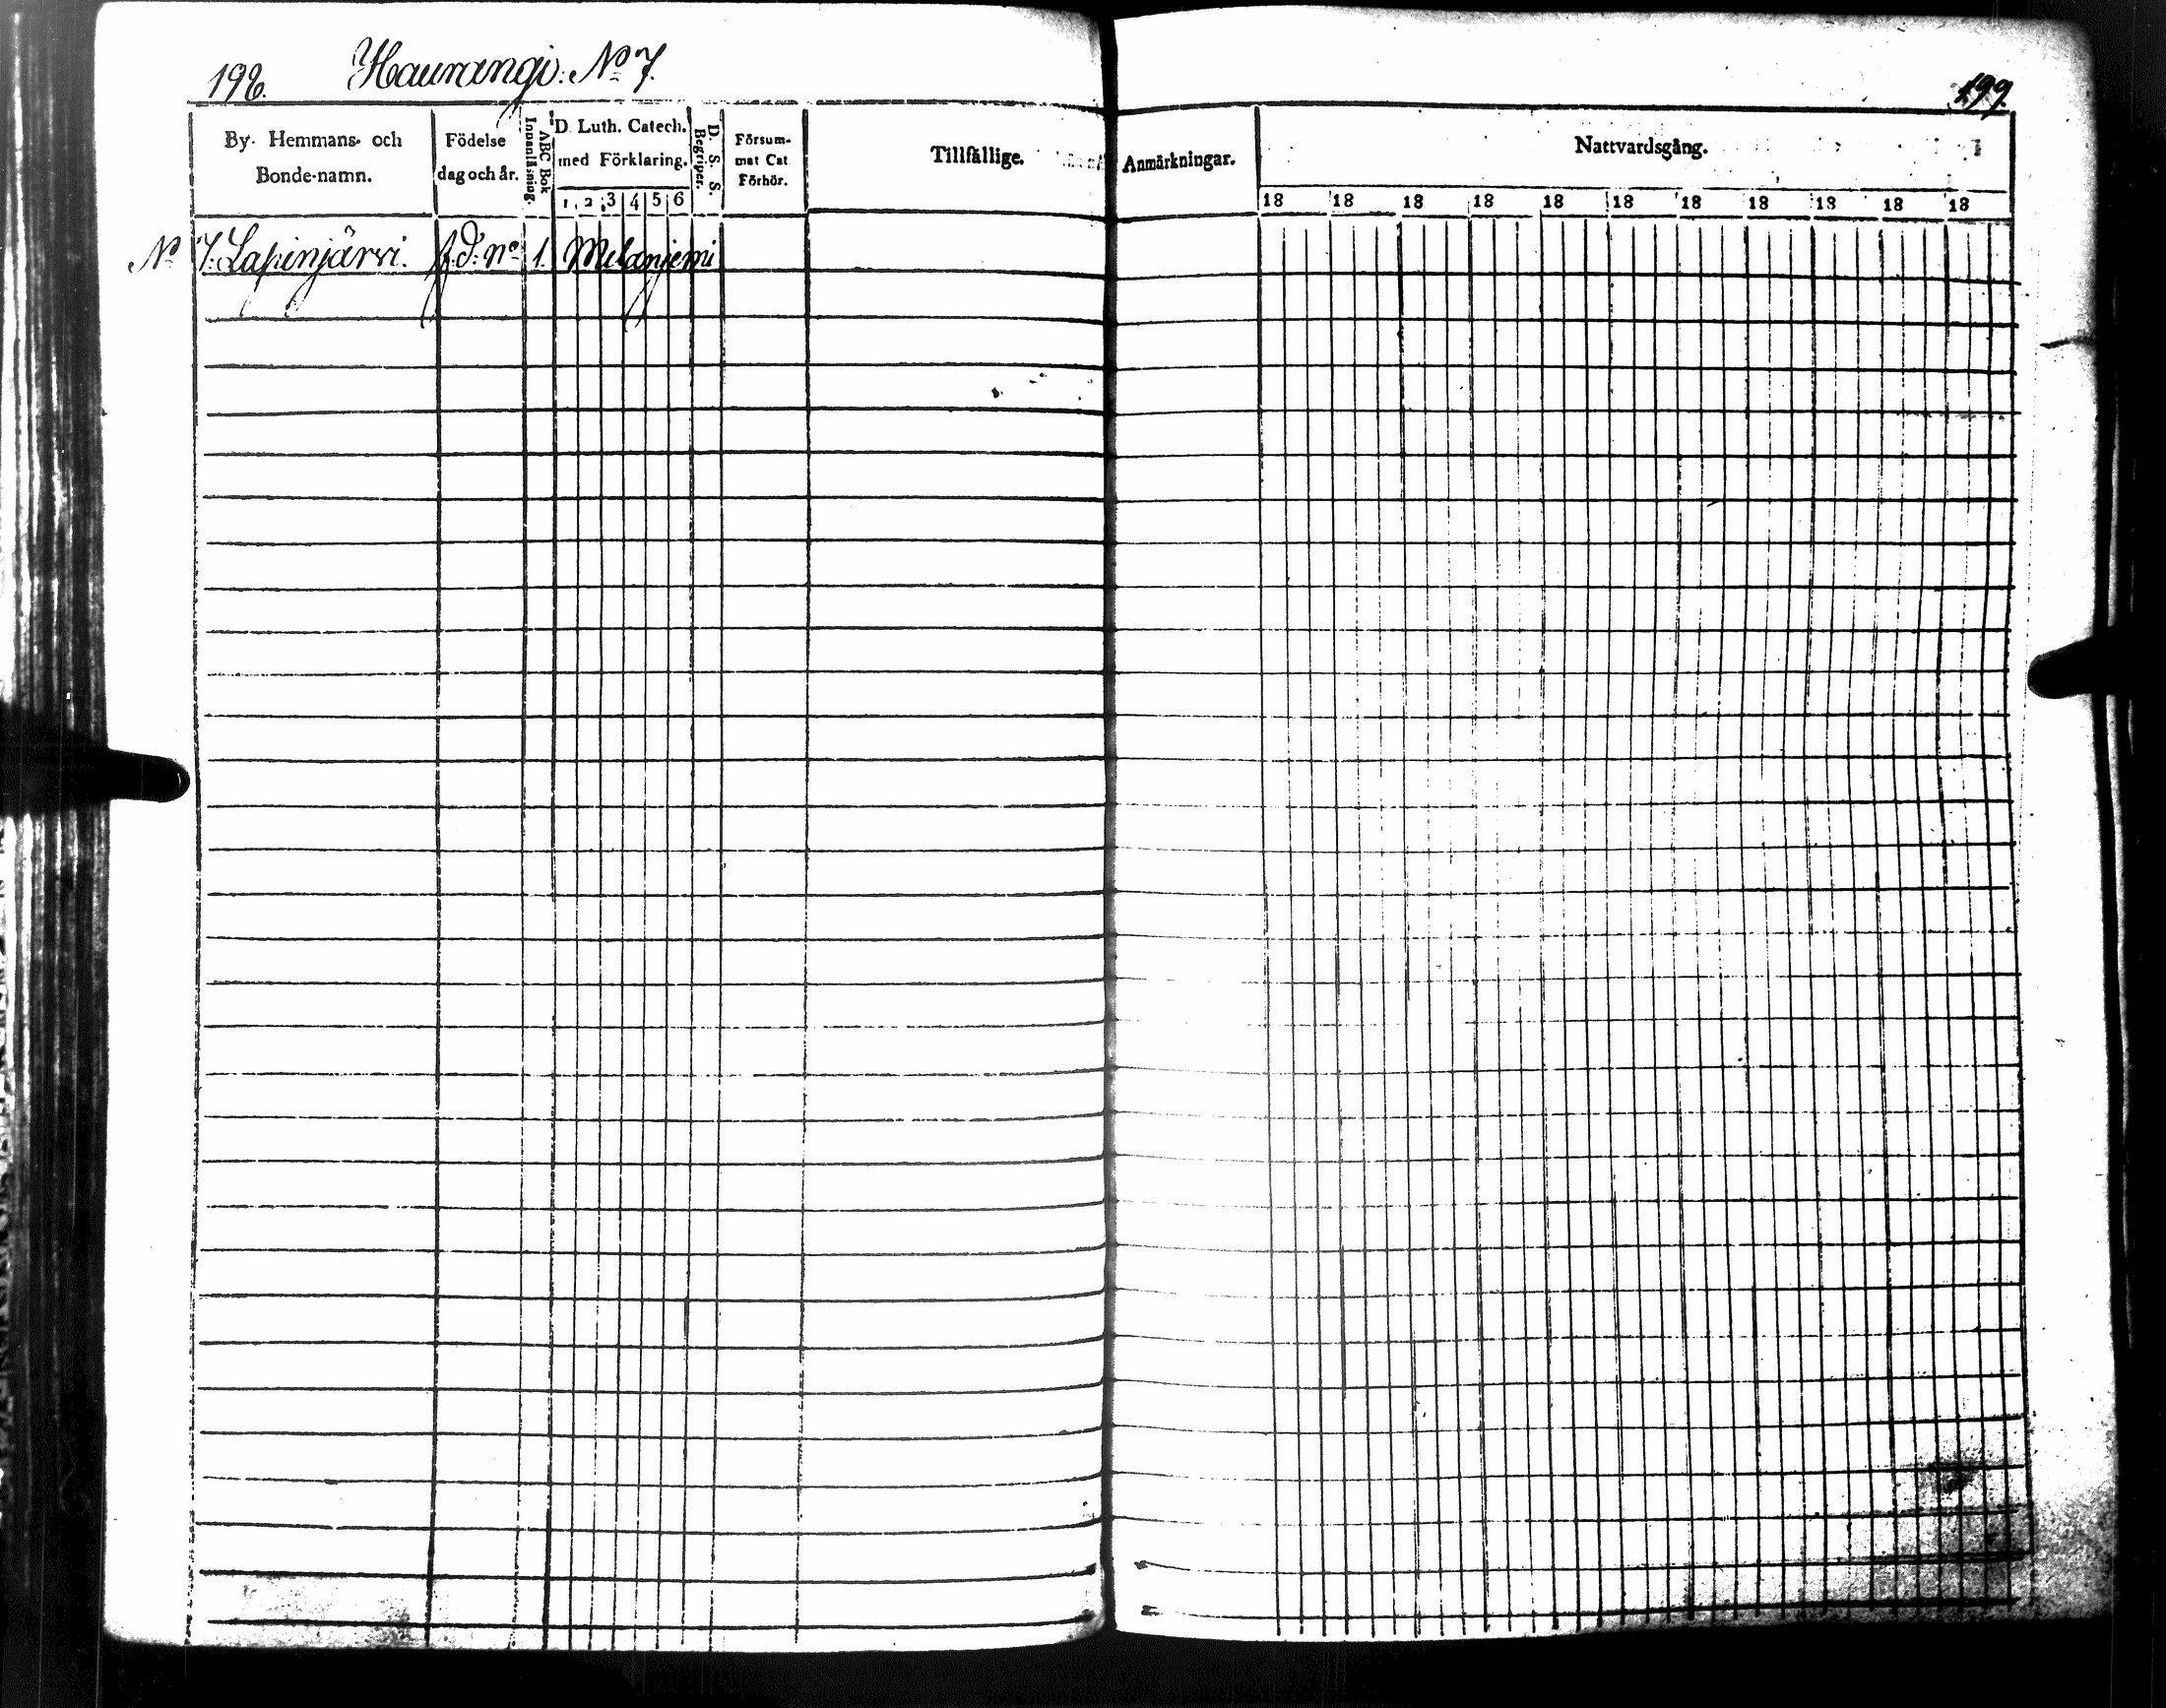 198. Haurangi: No 7.
199.
By- Hemmans- och Bonde-namn.
Födelse dag och år.
ABC Bok Innanläsning.
D. Luth. Catech. med Förklaring.
1 2 3 4 5 6
D. S. S. Begriper.
Försum- mat Cat Förhör.
Tillfällige.
Anmärkningar.
Nattvardsgång.
18 18 18 18 18 18 18 18 18 18 18
No 7. Lapinjärvi. f.d. no 1. Melanjemi